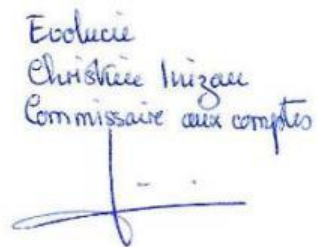 Evolucie
Christine Inizan
Commissaire aux comptes